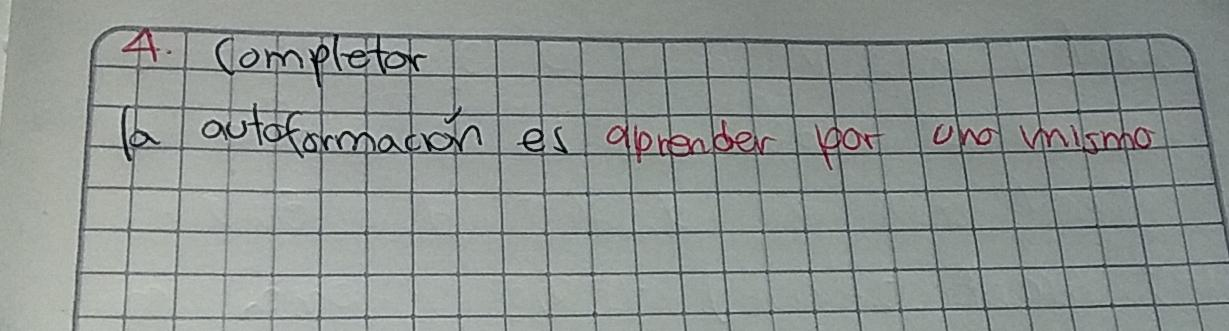 4. Completar
la autoformación es aprender por uno mismo